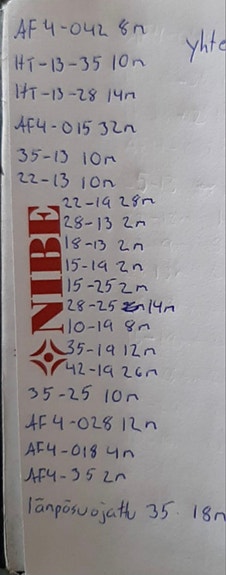 AF4-042 8m
yhte
HT-13-35 10m
HT-13-28 14m
AF4-015 32m
35-13 10m
22-13 10m
22-19 28m
28-13 2m
18-13 2m
15-19 2m
15-25 2m
28-25 14m
10-19 8m
35-19 12m
42-19 26m
NIBE
35-25 10m
AF4-028 12m
AF4-018 4m
AF4-35 2m
länpösuojattu 35 18m